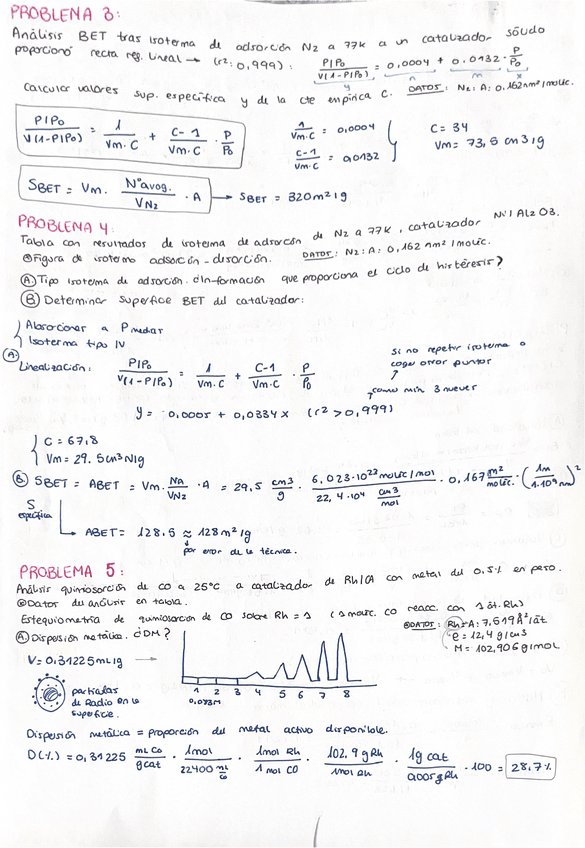 PROBLEMA 3:
Análisis BET tras isoterma de adsorción N2 a 77K a un catalizador sólido
proporcionó recta reg. lineal → (r²: 0,999): P/P0 / V(1-P/P0) = 0,0004 + 0.0132 · P/P0
y n m x
Calcular valores sup. específica y de la cte empírica C. DATOS: N2: A: 0,162nm²/molec.
P/P0 / V(1-P/P0) = 1 / Vm.C + C-1 / Vm.C · P/P0
1 / Vm.C = 0,0004
C-1 / Vm.C = 0,0132
C = 34
Vm = 73,5 cm3/g
SBET = Vm. Nºavog. / VN2 · A → SBET = 320m²/g
PROBLEMA 4:
Tabla con resultados de isoterma de adsorción de N2 a 77K, catalizador Ni/Al2O3.
Figura de isotermo adsorción-desorción. DATOS: N2: A: 0,162 nm²/molec.
A) Tipo isoterma de adsorción. ¿Información que proporciona el ciclo de histéresis?
B) Determinar Superficie BET del catalizador:
Absorcionar a P medias
Isoterma tipo IV
A) Linealización: P/P0 / V(1-P/P0) = 1 / Vm.C + C-1 / Vm.C · P/P0
si no repetir isoterma o
coger otros puntos
como min 3 nuevos
y = 0,0005 + 0,0334x (r² > 0,999)
C = 67,8
Vm = 29.5cm3N/g
B) SBET = ABET = Vm. NA / VN2 · A = 29,5 cm3/g · 6,023·10²³ molec/mol / 22,4·10⁴ cm3/mol · 0,167 m²/molec. · (1m / 1·10⁹nm)²
S específica
ABET = 128.5 ≈ 128m²/g
por error de la técnica.
PROBLEMA 5:
Análisis quimiosorción de CO a 25°C a catalizador de Rh/CA con metal del 0.5% en peso.
Datos del análisis en tabla.
Estequiometría de quimiosorción de CO sobre Rh = 1 (1 molec. CO reacc. con 1 át. Rh)
DATOS: Rh: A: 7,519Å²/át
ρ = 12,4 g/cm3
M = 102,906g/mol
A) Dispersión metálica. ¿DM?
V = 0,31225mL/g
1 2 3 4 5 6 7 8
0.073M
partículas
de Radio en la
superficie.
Dispersión metálica = proporción del metal activo disponible.
D(%) = 0,31225 mL CO / gcat · 1mol / 22400 mL CO · 1mol Rh / 1 mol CO · 102,9 gRh / 1mol Rh · 1g cat / 0,005gRh · 100 = 28,7%